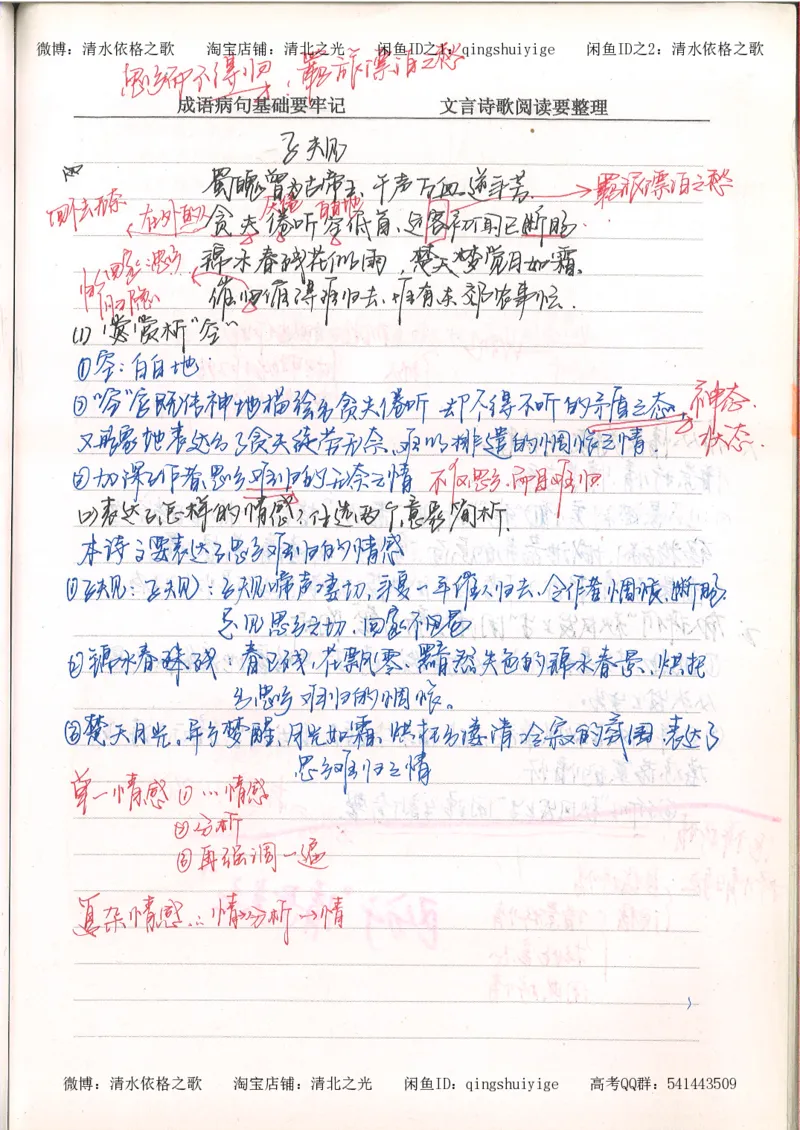 微博：清水依格之歌 淘宝店铺：清北之光 闲鱼ID之1：qingshuiyige 闲鱼ID之2：清水依格之歌
思乡而不得归，羁旅漂泊之愁
成语病句基础要牢记 文言诗歌阅读要整理
子规
蜀魄曾为古帝王，千声万血送年芳。
羁旅漂泊之愁
贪夫倦听空低首，远客初闻已断肠。
在外的人
白白地
锦水春残花似雨，楚天梦觉月如霜。
催归催得谁归去，唯有东郊农事忙。
(1)赏析“空”
①空：白白地
②“空”字既传神地描绘出贪夫倦听却不得不听的矛盾之态
神态
状态
又形象地表达出了贪夫徒劳无奈、难以排遣的惆怅之情。
③切课作者思乡难归的无奈之情 不仅思乡，而且难归
(2)表达了怎样的情感？任选两个意象简析。
本诗主要表达了思乡难归的情感
①子规：子规啼声凄切，年复一年催人归去，令作者惆怅、断肠
足见思乡之切，回家不易
②锦水春残：春已残，花飘零，黯然失色的锦水春景，烘托
出思乡难归的惆怅。
③楚天月光，异乡梦醒，月光如霜，烘托出凄清冷寂的氛围，表达了
思乡难归之情
单一情感 ①…情感
②分析
③再强调一遍
复杂情感：情→分析→情
微博：清水依格之歌 淘宝店铺：清北之光 闲鱼ID：qingshuiyige 高考QQ群：541443509